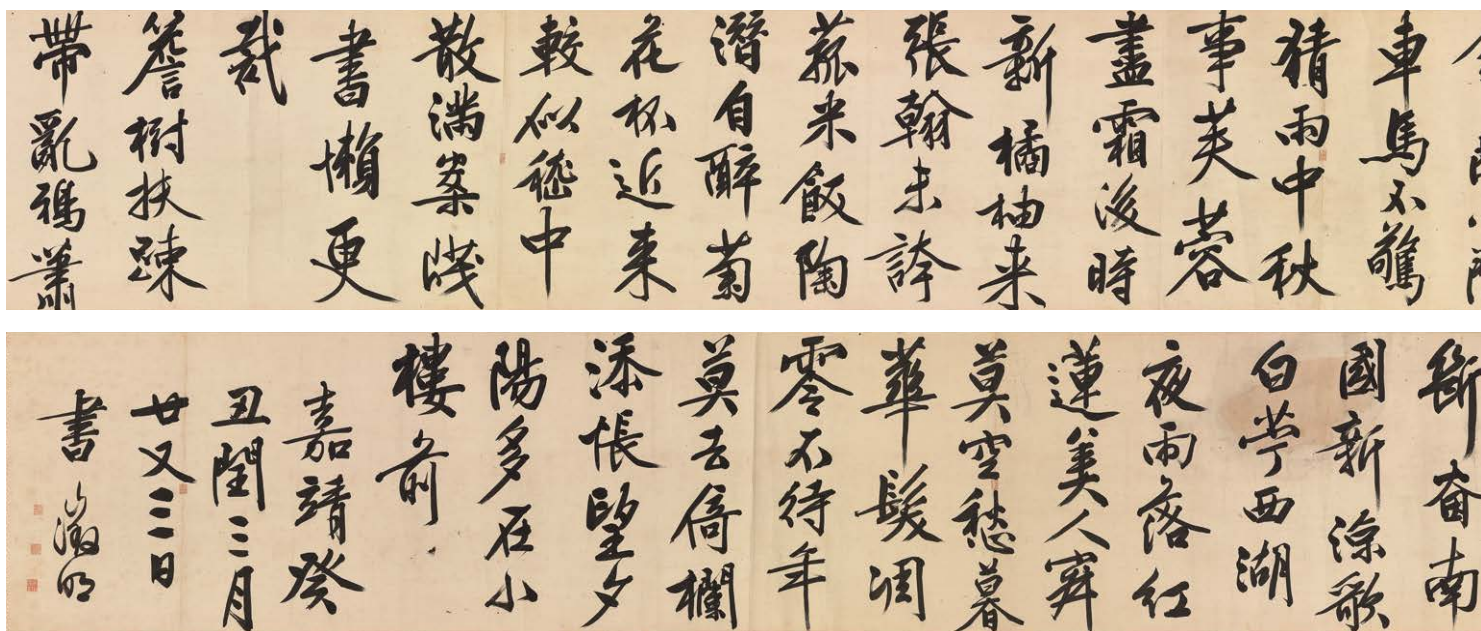 車馬不驚
猜雨中秋
事芙蓉
盡霜後時
新橘柚来
張翰未誇
菰米飯陶
潛自醉菊
花杯近来
較似嵇中
散滿案牋
書懶更
裁
簷樹扶踈
帶亂鴉蕭
斷南
國新涼歌
白苧西湖
夜雨落紅
蓮美人寂
莫空愁暮
華髮凋
零不待年
莫去倚欄
添悵望夕
陽多在小
樓前
嘉靖癸
丑閏三月
廿又三日
書 徵明